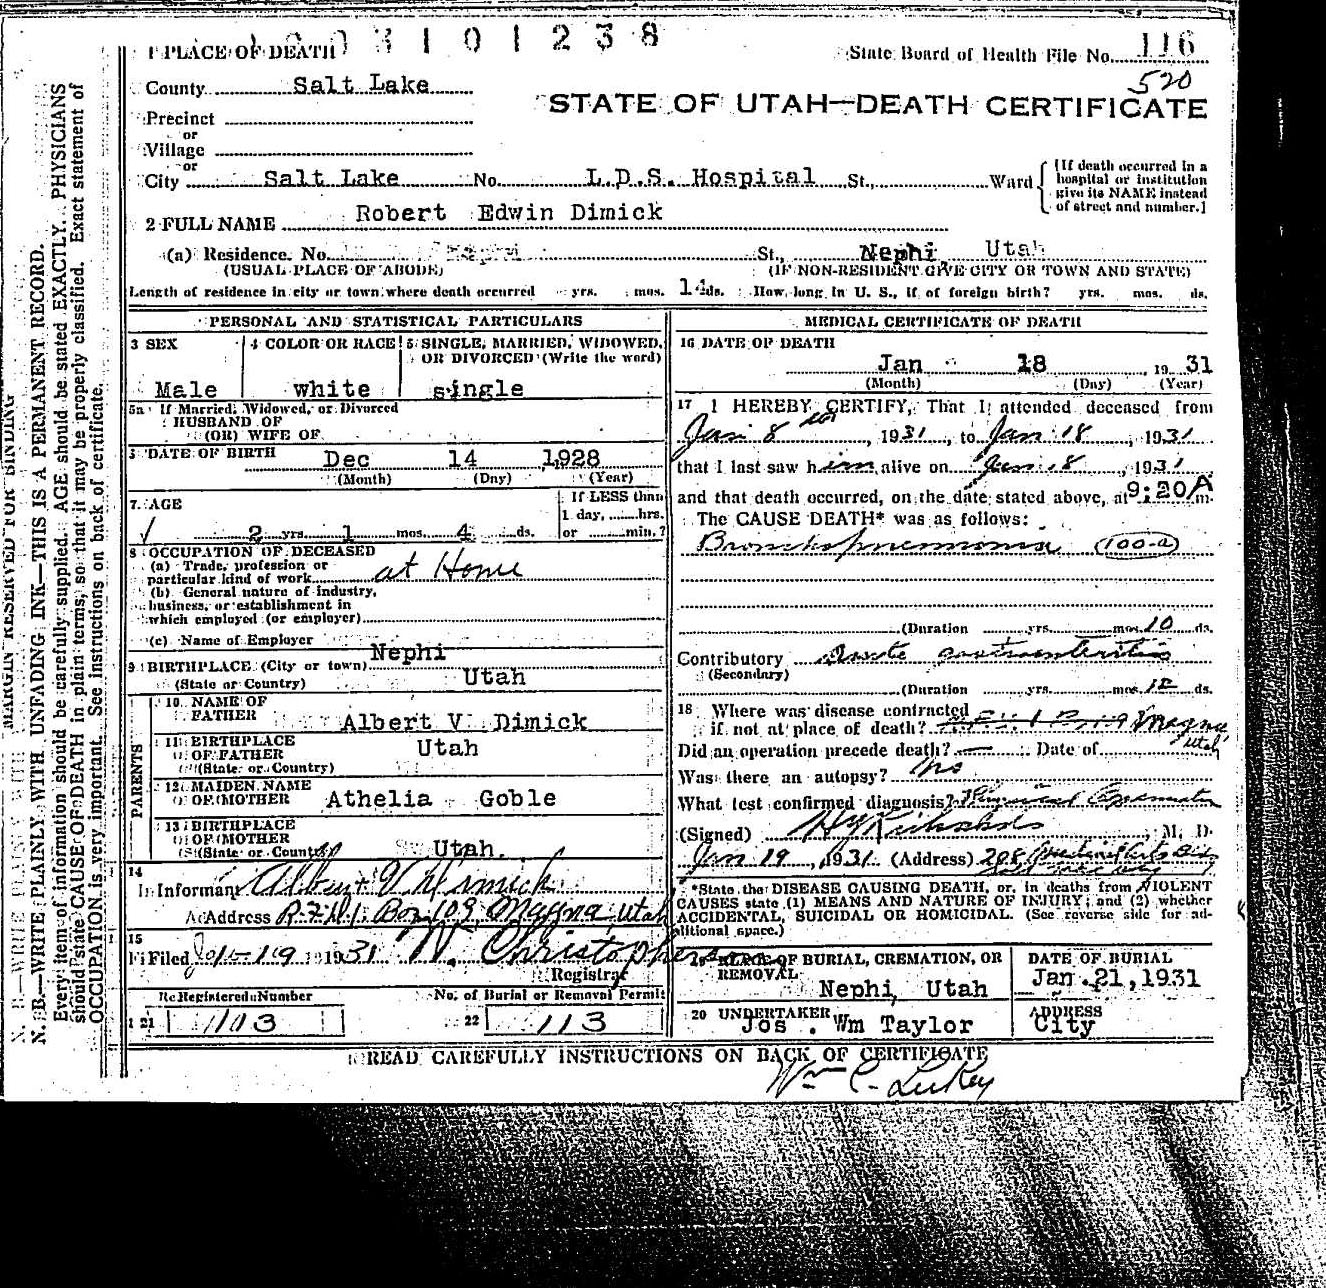 3 1 0 1 2 3 8
1 PLACE OF DEATH
State Board of Health File No. 116
520
County Salt Lake
STATE OF UTAH—DEATH CERTIFICATE
Precinct
or
Village
or
City Salt Lake No. L.D.S. Hospital St., Ward
[If death occurred in a hospital or institution give its NAME instead of street and number.]
2 FULL NAME Robert Edwin Dimick
(a) Residence. No. St., Nephi, Utah
(USUAL PLACE OF ABODE) (IF NON-RESIDENT GIVE CITY OR TOWN AND STATE)
Length of residence in city or town where death occurred yrs. mos. 14 ds. How long in U. S., if of foreign birth? yrs. mos. ds.
PERSONAL AND STATISTICAL PARTICULARS
3 SEX
Male
4 COLOR OR RACE
white
5 SINGLE, MARRIED, WIDOWED, OR DIVORCED (Write the word)
single
5a If Married, Widowed, or Divorced
HUSBAND OF
(OR) WIFE OF
DATE OF BIRTH Dec 14 1928
(Month) (Day) (Year)
7. AGE
2 yrs. 1 mos. 4 ds.
If LESS than
1 day, hrs.
or min.?
8 OCCUPATION OF DECEASED
(a) Trade, profession or
particular kind of work at Home
(b) General nature of industry,
business, or establishment in
which employed (or employer)
(c) Name of Employer
9 BIRTHPLACE (City or town) Nephi
(State or Country) Utah
PARENTS
10 NAME OF
FATHER Albert V Dimick
11 BIRTHPLACE
OF FATHER Utah
(State or Country)
12 MAIDEN NAME
OF MOTHER Athelia Goble
13 BIRTHPLACE
OF MOTHER
(State or Country) Utah.
14
Informant Albert V Dimick
Address R.F.D.1 Box 109 Magna, Utah
15
Filed Jan-19 1931 W. Christopherson
Registrar
Registered Number
21 113
No. of Burial or Removal Permit
22 113
MEDICAL CERTIFICATE OF DEATH
16 DATE OF DEATH
Jan 18, 1931
(Month) (Day) (Year)
17 I HEREBY CERTIFY, That I attended deceased from
Jan 8, 1931, to Jan 18, 1931
that I last saw him alive on Jan 18, 1931
and that death occurred, on the date stated above, at 9:20 A m.
The CAUSE DEATH* was as follows:
Bronchopneumonia (100-a)
(Duration yrs. mos. 10 ds.
Contributory Acute gastroenteritis
(Secondary)
(Duration yrs. mos. 12 ds.
18 Where was disease contracted
if not at place of death? Magna, Utah
Did an operation precede death? — Date of
Was there an autopsy? No
What test confirmed diagnosis? Physical Examination
(Signed) , M. D.
Jan 19, 1931 (Address) 208 Medical Arts Bldg
Salt Lake City
*State the DISEASE CAUSING DEATH, or, in deaths from VIOLENT
CAUSES state (1) MEANS AND NATURE OF INJURY; and (2) whether
ACCIDENTAL, SUICIDAL OR HOMICIDAL. (See reverse side for additional space.)
19 PLACE OF BURIAL, CREMATION, OR
REMOVAL
Nephi, Utah
DATE OF BURIAL
Jan. 21, 1931
20 UNDERTAKER
Jos. Wm Taylor
ADDRESS
City
READ CAREFULLY INSTRUCTIONS ON BACK OF CERTIFICATE
Wm C.
MARGIN RESERVED FOR BINDING
N. B.—WRITE PLAINLY, WITH UNFADING INK—THIS IS A PERMANENT RECORD.
Every item of information should be carefully supplied. AGE should be stated EXACTLY. PHYSICIANS
should state CAUSE OF DEATH in plain terms, so that it may be properly classified. Exact statement of
OCCUPATION is very important. See instructions on back of certificate.